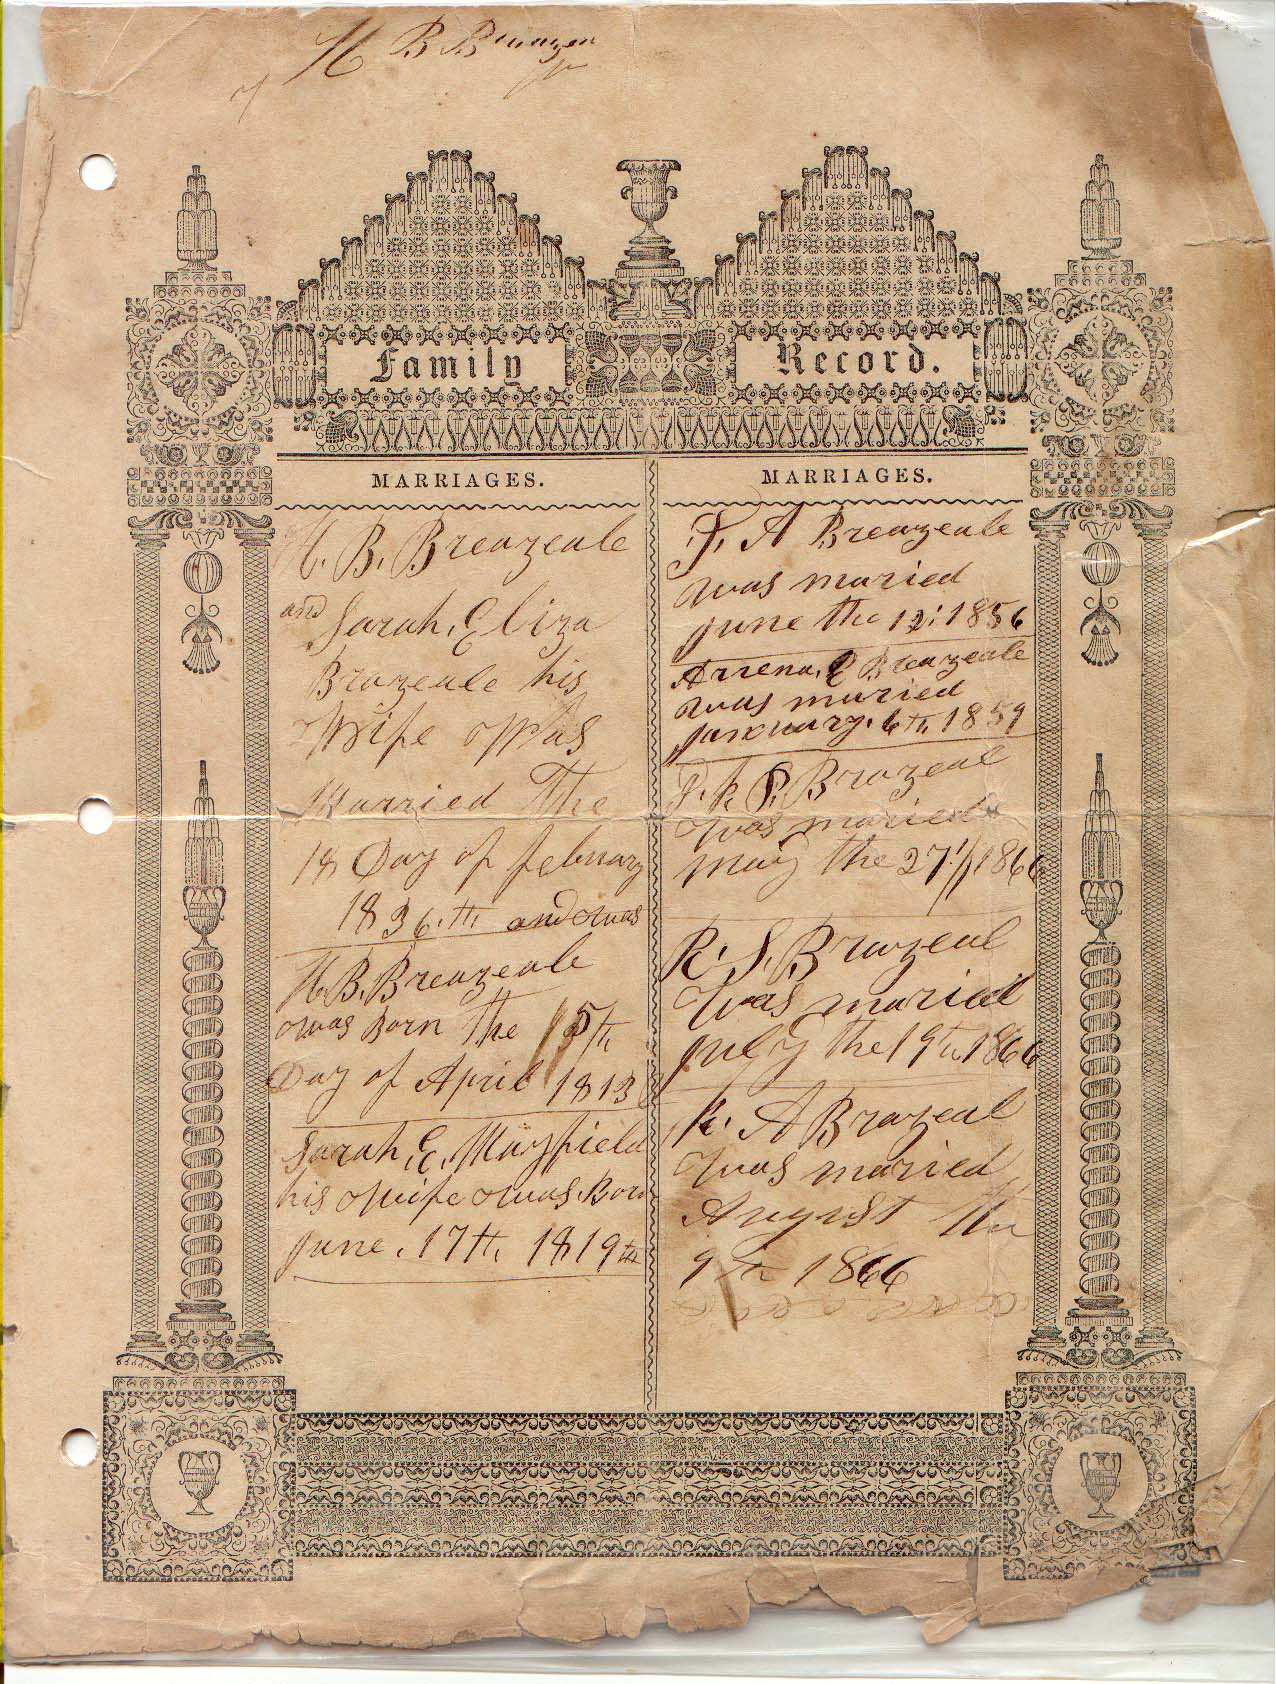 H B B
Family Record.
MARRIAGES.
H. B. Breazeale
and Sarah, Eliza
Brazeale his
Wife Was
Married The
18 Day of february
1836.th and was
H. B. Breazeale
was Born the 15th
Day of April 1813
Sarah, E, Mayfield
his wife was Born
June, 17th, 1819th
MARRIAGES.
A Breazeale
was maried
June the 12: 1856
Arrena, E Breazeale
was maried
January. 6th, 1859
Brazeal
was maried
may the 27th 1866
R. S. Brazeal
was maried
July the 19th 1866
A Brazeal
was maried
August the
9th 1866